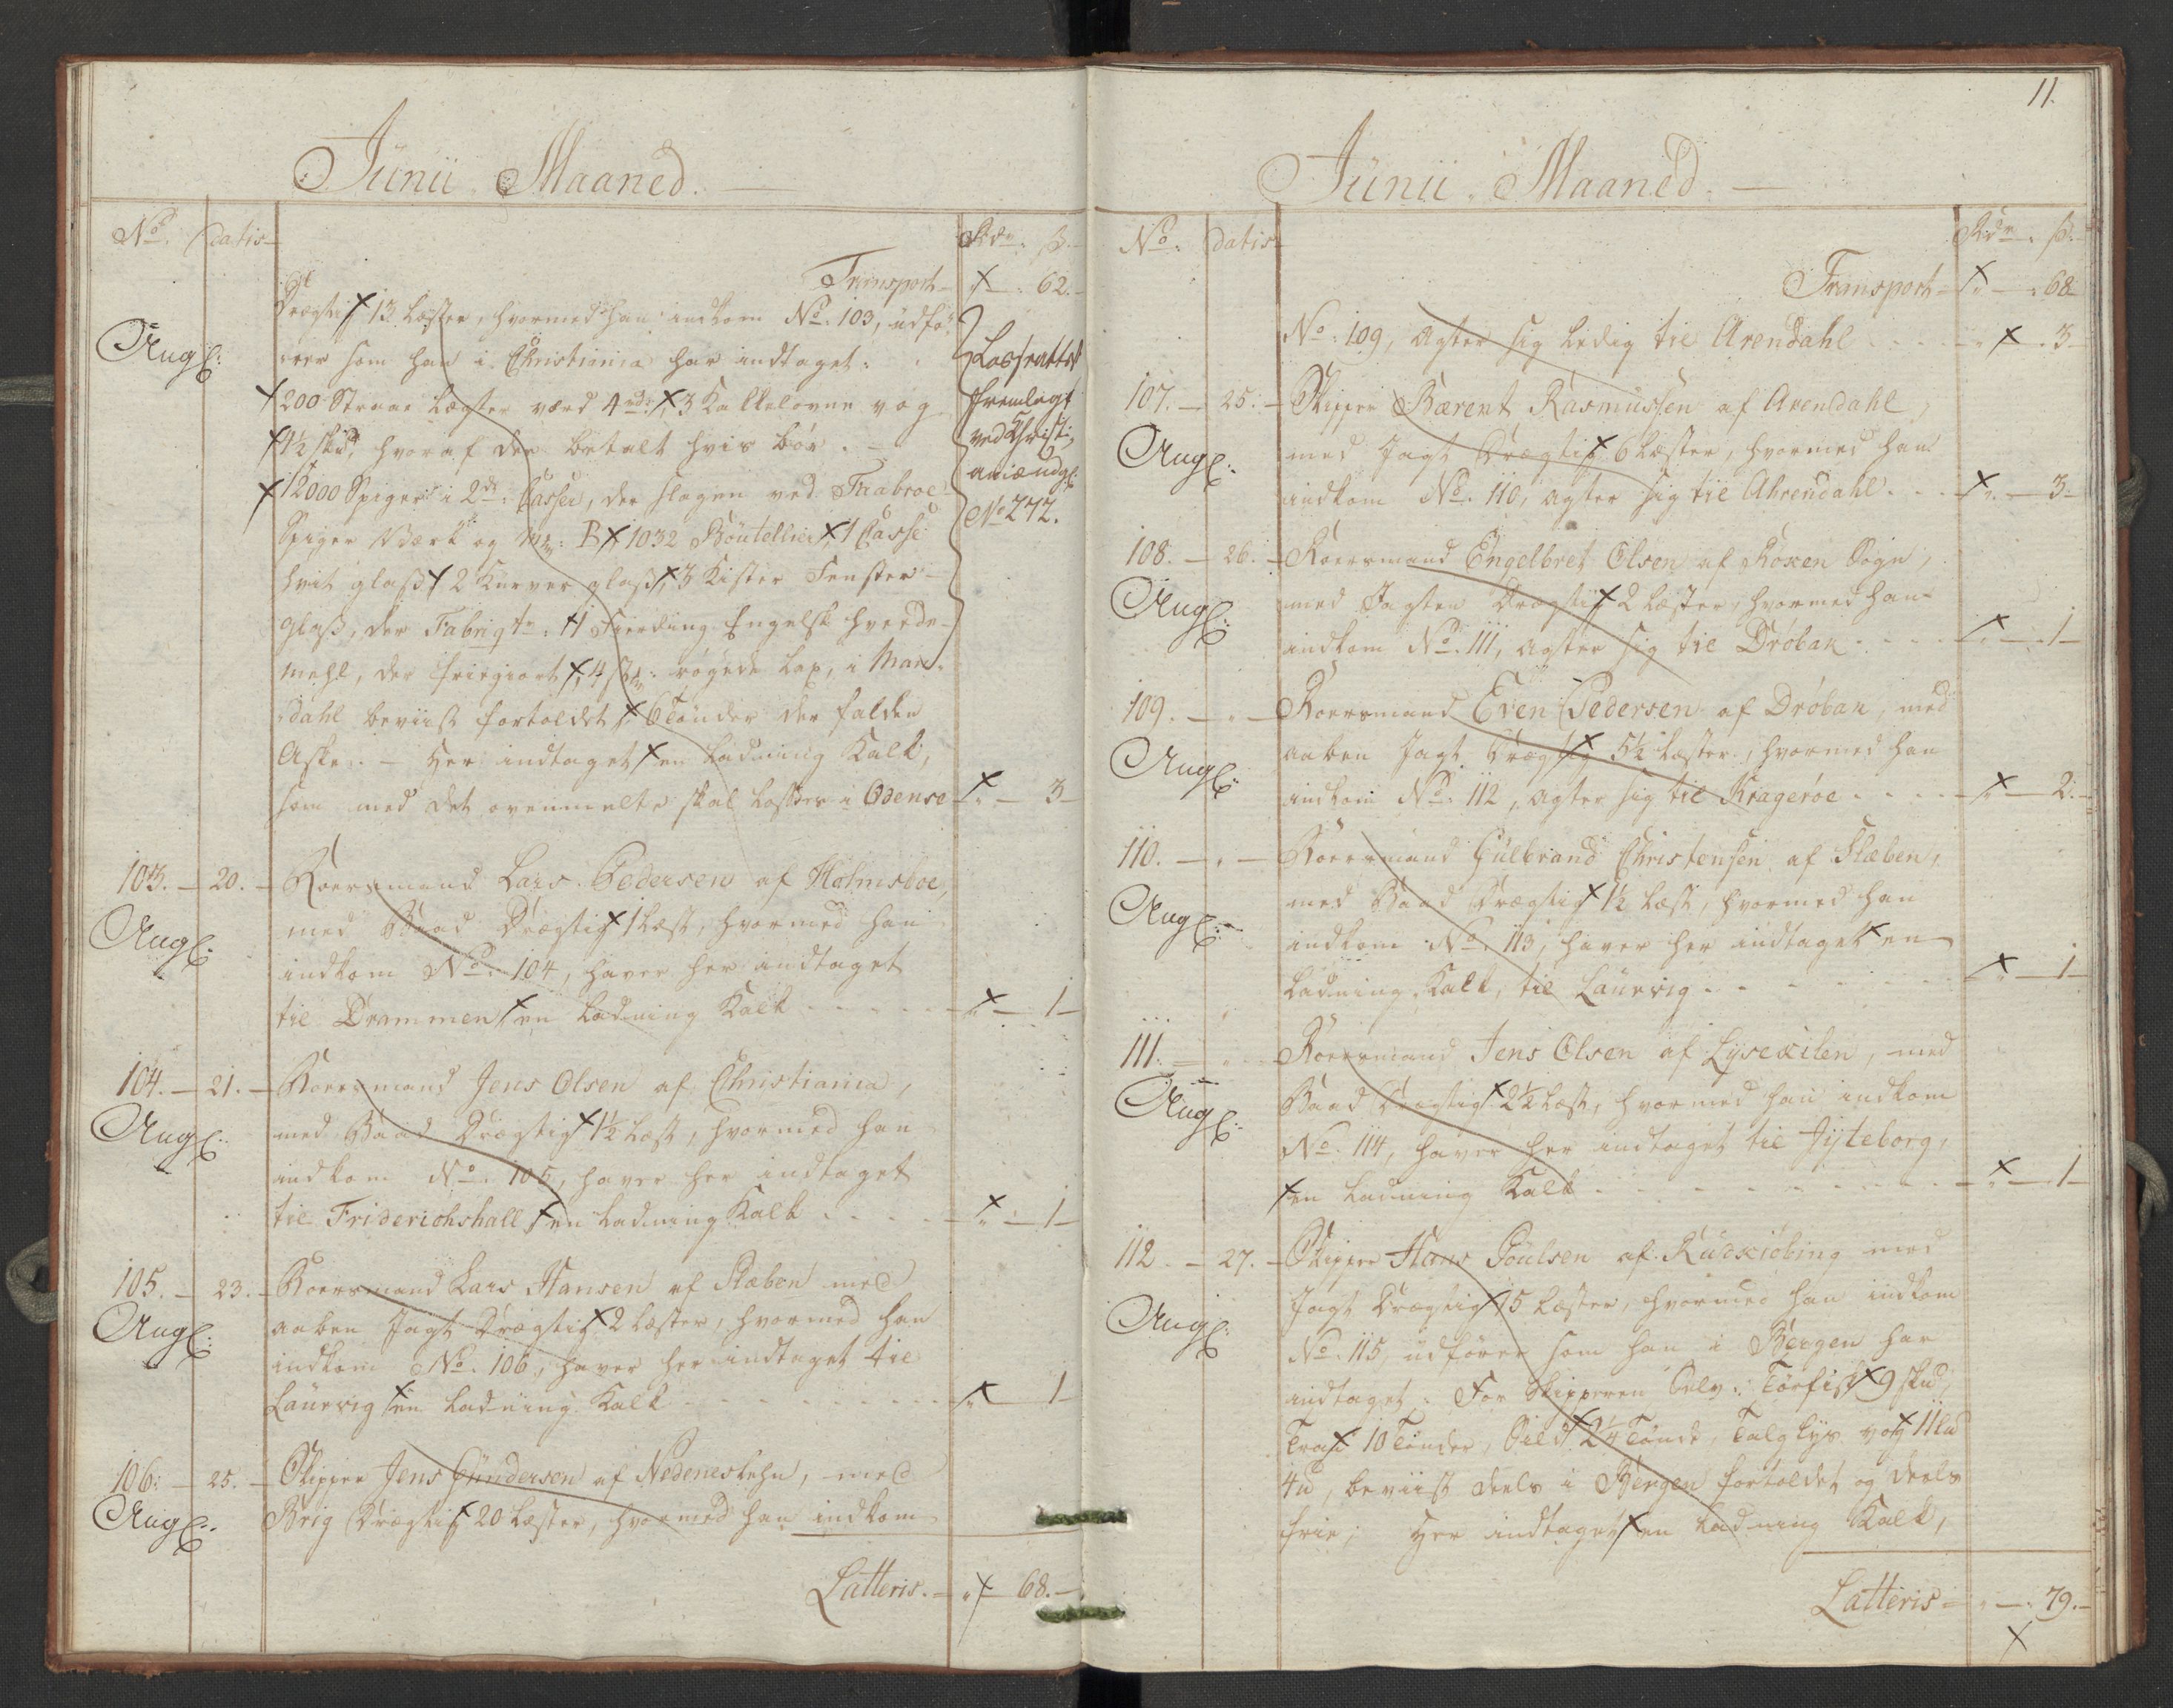 Junii Maaned.
No. Datis Rdr. ß.
Transport 62.
Drægtig 13 Læster, hvormed han indkom No. 103, udfø-
Angl:
rer som han i Christiania har indtaget:
200 Straae Lægter værd 4 rdr, 3 Kakkelovne vog
4½ sk℔, hvoraf der betalt hvis bør. -
12000 Spiger i 2de Casser, der slagen ved
Spiger Værk og 1032 Boutellier, 1 Casse
hvit glaß, 2 Kurver glaß, 3 Kister Fenster-
glaß, der Fabriqt 1 Fierding Engelsk hvede-
mehl, der friegiort, 4 røgede Lax, i Man-
dahl beviist fortoldet, 6 Tønder der falden
Aske. - Her indtaget en Ladning Kalk,
som med det ovenmelte skal losses i Odense 3
fremlagt
ved Christi-
No 272.
103. 20. Roersmand Lars Pedersen af Holmsboe,
Angl:
med Baad Drægtig 1 Læst, hvormed han
indkom No. 104, haver her indtaget
til Drammen en Ladning Kalk 1
104. 21. Roersmand Jens Olsen af Christiania,
Angl:
med Baad Drægtig 1½ Læst, hvormed han
indkom No. 105, haver her indtaget
til Friderichshall en Ladning Kalk 1
105. 23. Roersmand Lars Hansen af Slæben med
Angl:
aaben Jagt Drægtig 2 Læster, hvormed han
indkom No. 106, haver her indtaget til
Laurvig en Ladning Kalk 1
106. 25. Skipper Jens Gundersen af Nedenes Lehn, med
Angl:
Brig Drægtig 20 Læster, hvormed han indkom
Latteris. 68.
11.
Junii Maaned.
No. Datis Rdr. ß.
Transport 68
No. 109, agter sig ledig til Arendahl 3
107. 25. Skipper Bærent Rasmussen af Arendahl,
Angl:
med Jagt Drægtig 6 Læster, hvormed han
indkom No. 110, agter sig til Ahrendahl 3
108. 26. Roersmand Engelbret Olsen af Røken Sogn,
Angl:
med Jagten Drægtig 2 Læster, hvormed han
indkom No. 111, agter sig til Drøbak 1
109. Roersmand Even Pedersen af Drøbak, med
Angl:
aaben Jagt Drægtig 5½ Læster, hvormed han
indkom No. 112, agter sig til Kragerøe 2.
110. Roersmand Gulbrand Christensen af Slæben,
Angl:
med Baad Drægtig 1½ Læst, hvormed han
indkom No. 113, haver her indtaget en
Ladning Kalk, til Laurvig 1
111. Roersmand Jens Olsen af Lysekilen, med
Angl:
Baad Drægtig 2½ Læst, hvormed han indkom
No. 114, haver her indtaget til Jyteborg,
en Ladning Kalk 1
112. 27. Skipper Hans Poulsen af Rudkiøbing med
Angl:
Jagt Drægtig 15 Læster, hvormed han indkom
No. 115, udfører som han i Bergen har
indtaget. For Skipperen Selv: Tørfisk 9 sk℔,
Tran 10 Tønder, Sild 2¼ Tønde, Talg Lys vog 11 L℔
4 ℔, beviist deels i Bergen fortoldet og deels
frie; Her indtaget en Ladning Kalk,
Latteris 79.